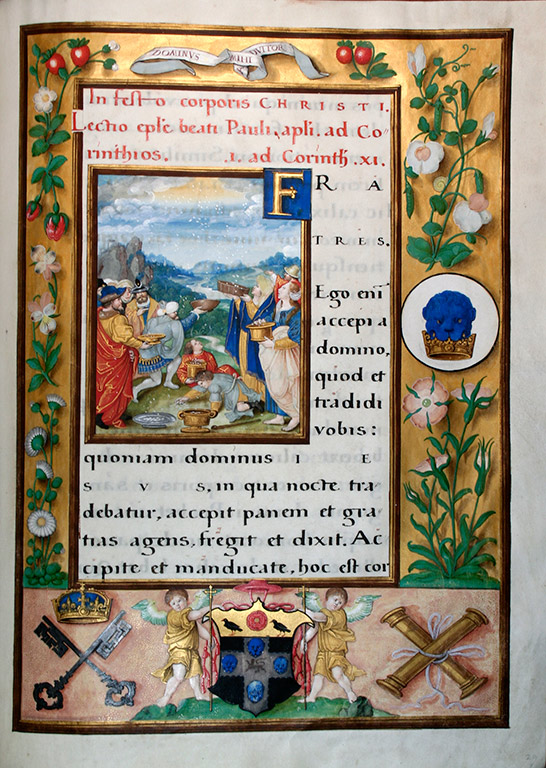 DOMINVS MIHI ADIVTOR
In festo corporis CHRISTI.
Lectio eple beati Pauli, apli. ad Co-
rinthios. .I. ad Corinth. XI.
FRA
TRES.
Ego eni
accepi a
domino,
quod et
tradidi
vobis:
quoniam dominus IE
SVS, in qua nocte tra
debatur, accepit panem et gra
tias agens, fregit et dixit. Ac
cipite et manducate, hoc est cor